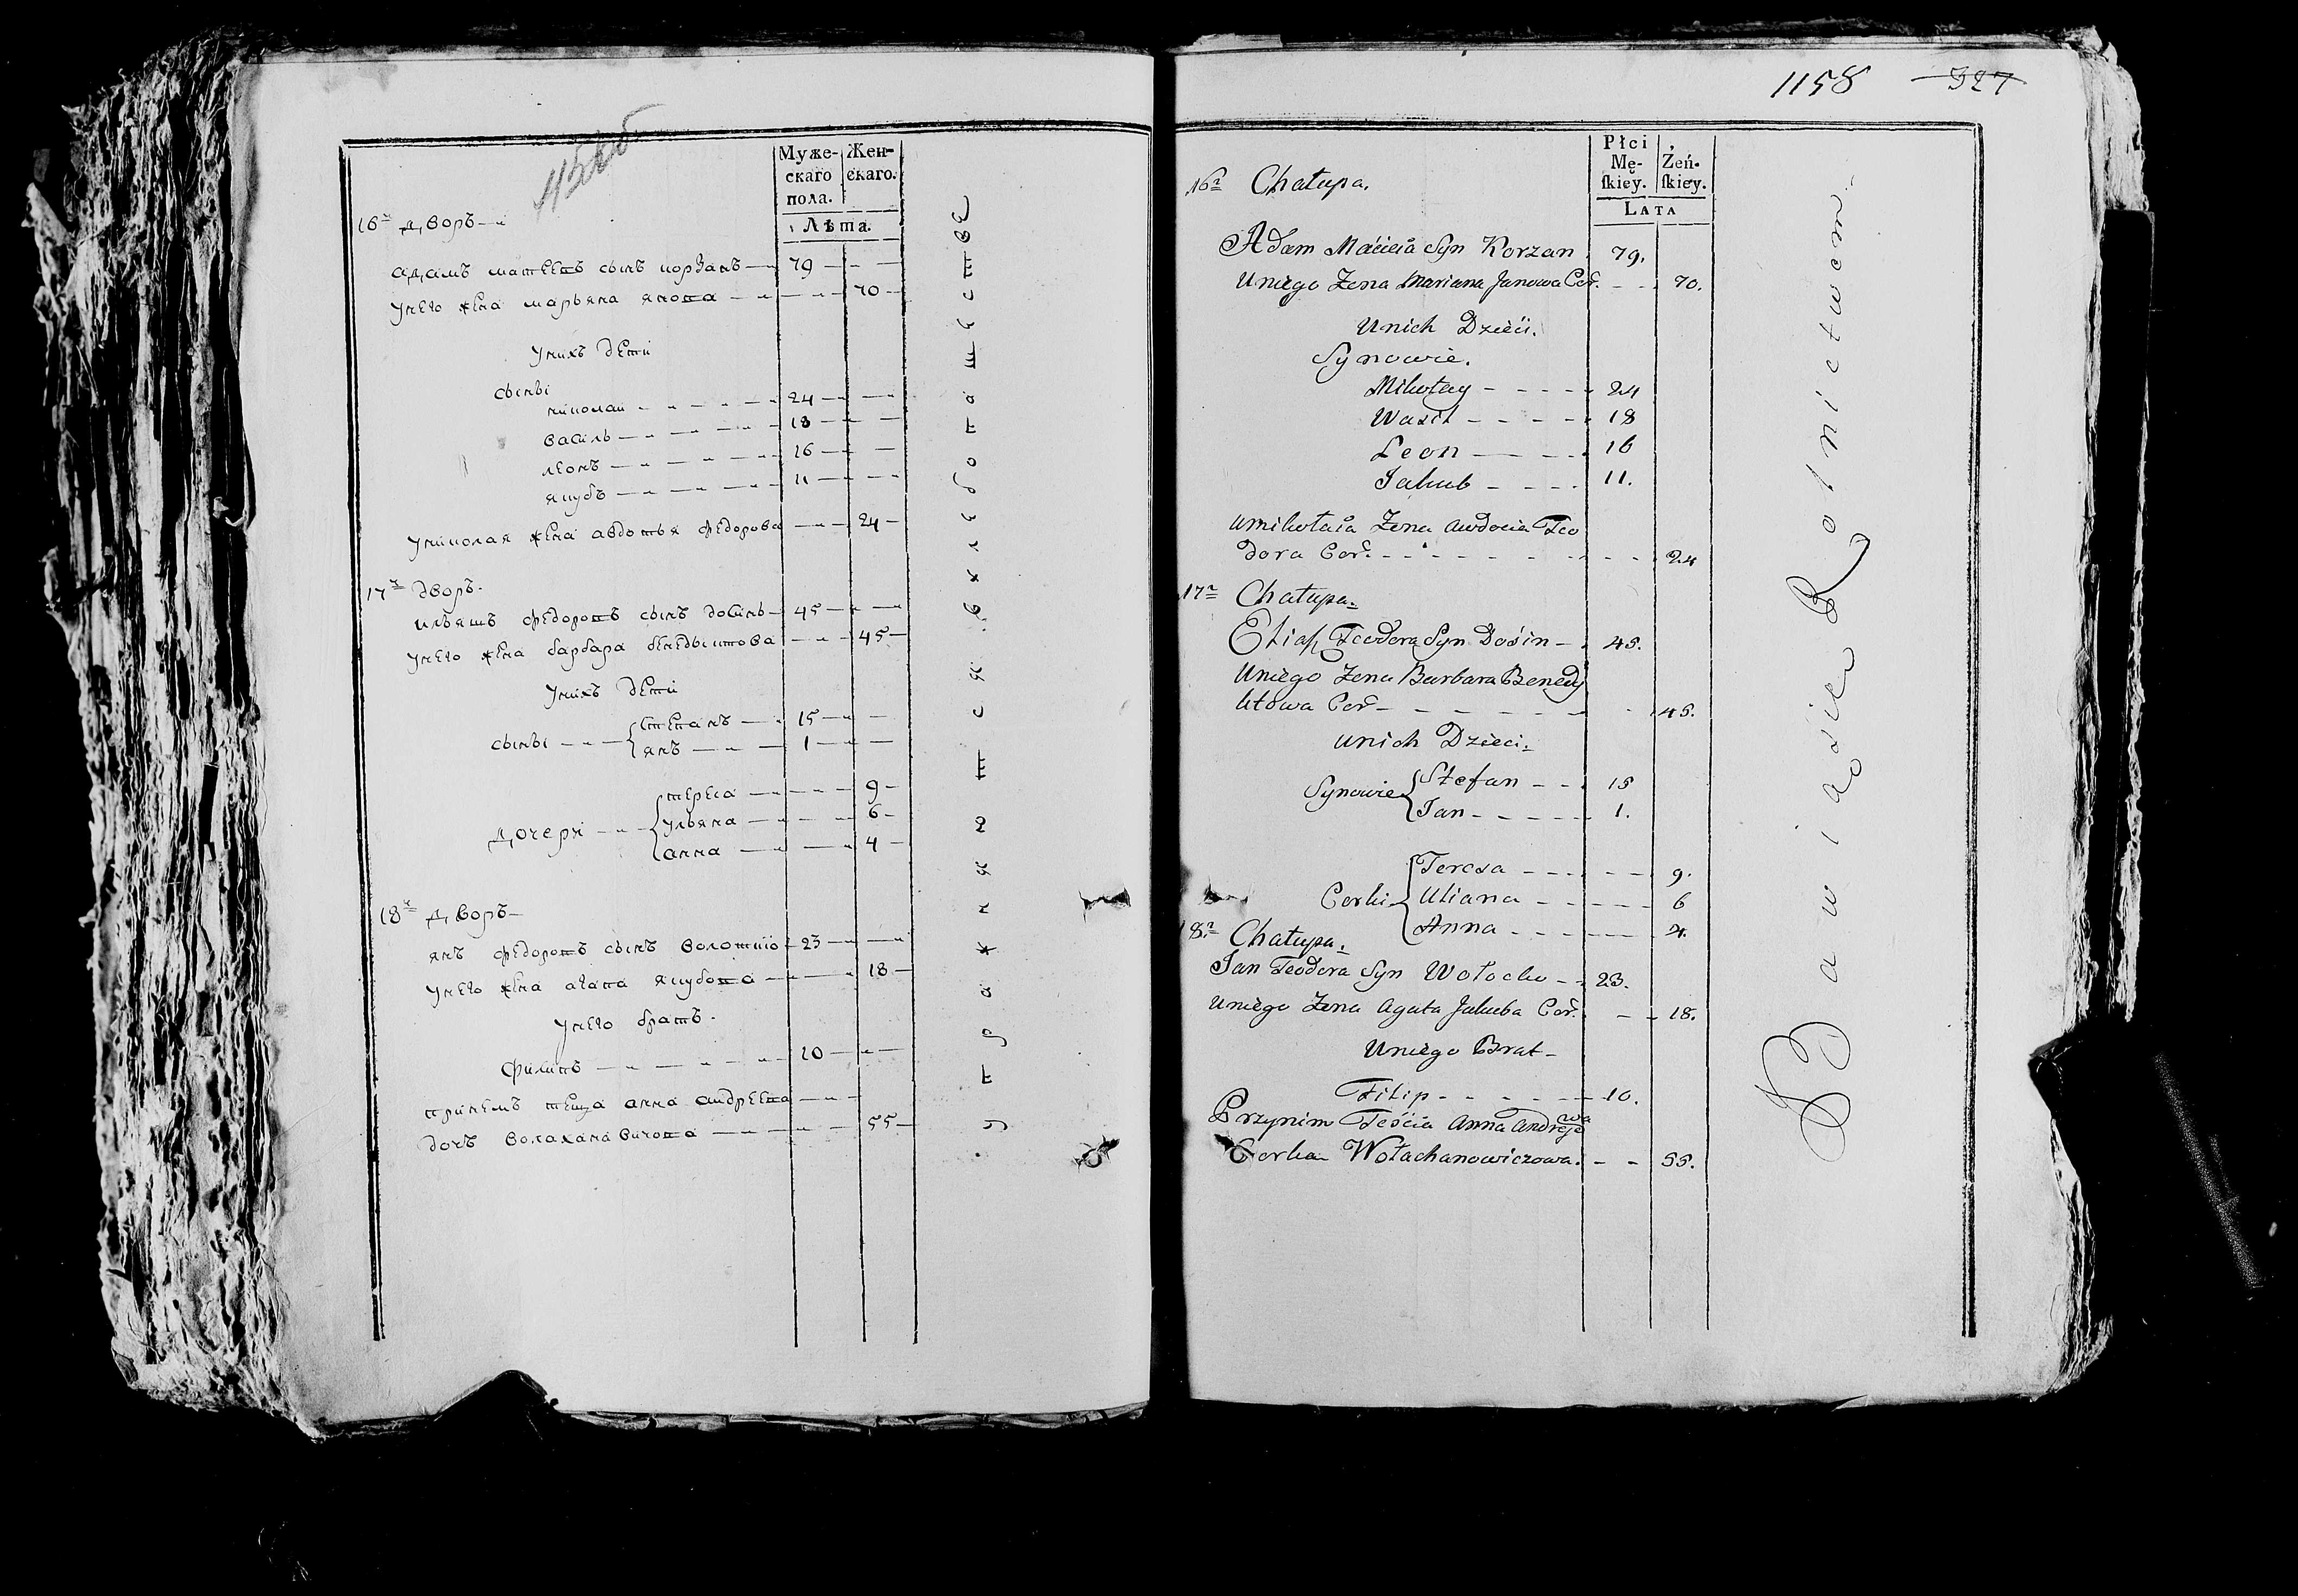 Муже-
скаго
пола.
Жен-
скаго.
Лѣта.
16й дворъ
адамъ матеевъ сынъ корзанъ 79
унего жена марьяна янова 70
унихъ дети
сыны
николаи 24
василь 18
леонъ 16
якубъ 11
униколая жена авдотья федорова 24
17й дворъ.
ильяшъ федоровъ сынъ досинь 45
унего жена барбара бенедыктова 45
унихъ дети
сыны
степанъ 15
янъ 1
дочери
тереса 9
ульяна 6
анна 4
18й дворъ
янъ федоровъ сынъ 23
унего жена агапа якубова 18
унего братъ.
филипъ 10
принемъ теща анна андреева
дочъ волахановичова 55
упражняются въ хлебопашестве
1158 327
16a Chałupa.
Płci
Mę-
skiey.
Żeń-
skiey.
LATA
Adam Macieia Syn Korzan 79.
Uniego Zona Mariana Janowa Cor. 70.
Unich Dzieci.
Synowie.
Mikołay 24
Wasil 18
Leon 16
Jakub 11.
Umikołaia Zona Awdocia Teo
dora Cor. 24
17a Chałupa.
Eliasz Teodora Syn Dosin 45.
Uniego Zona Barbara Benedy
ktowa Cor 45.
Unich Dzieci.
Synowie
Stefan 15
Jan 1.
Corki
Teresa 9.
Uliana 6
Anna 4.
18a Chałupa.
Jan Teodora Syn Wołocko 23.
Uniego Zona Agata Jakuba Cor. 18.
Uniego Brat
Filip 10.
Przynim Teścia Anna Andreje
wa
Corka Wołachanowiczowa. 55.
Bawią się Rolnictwem.